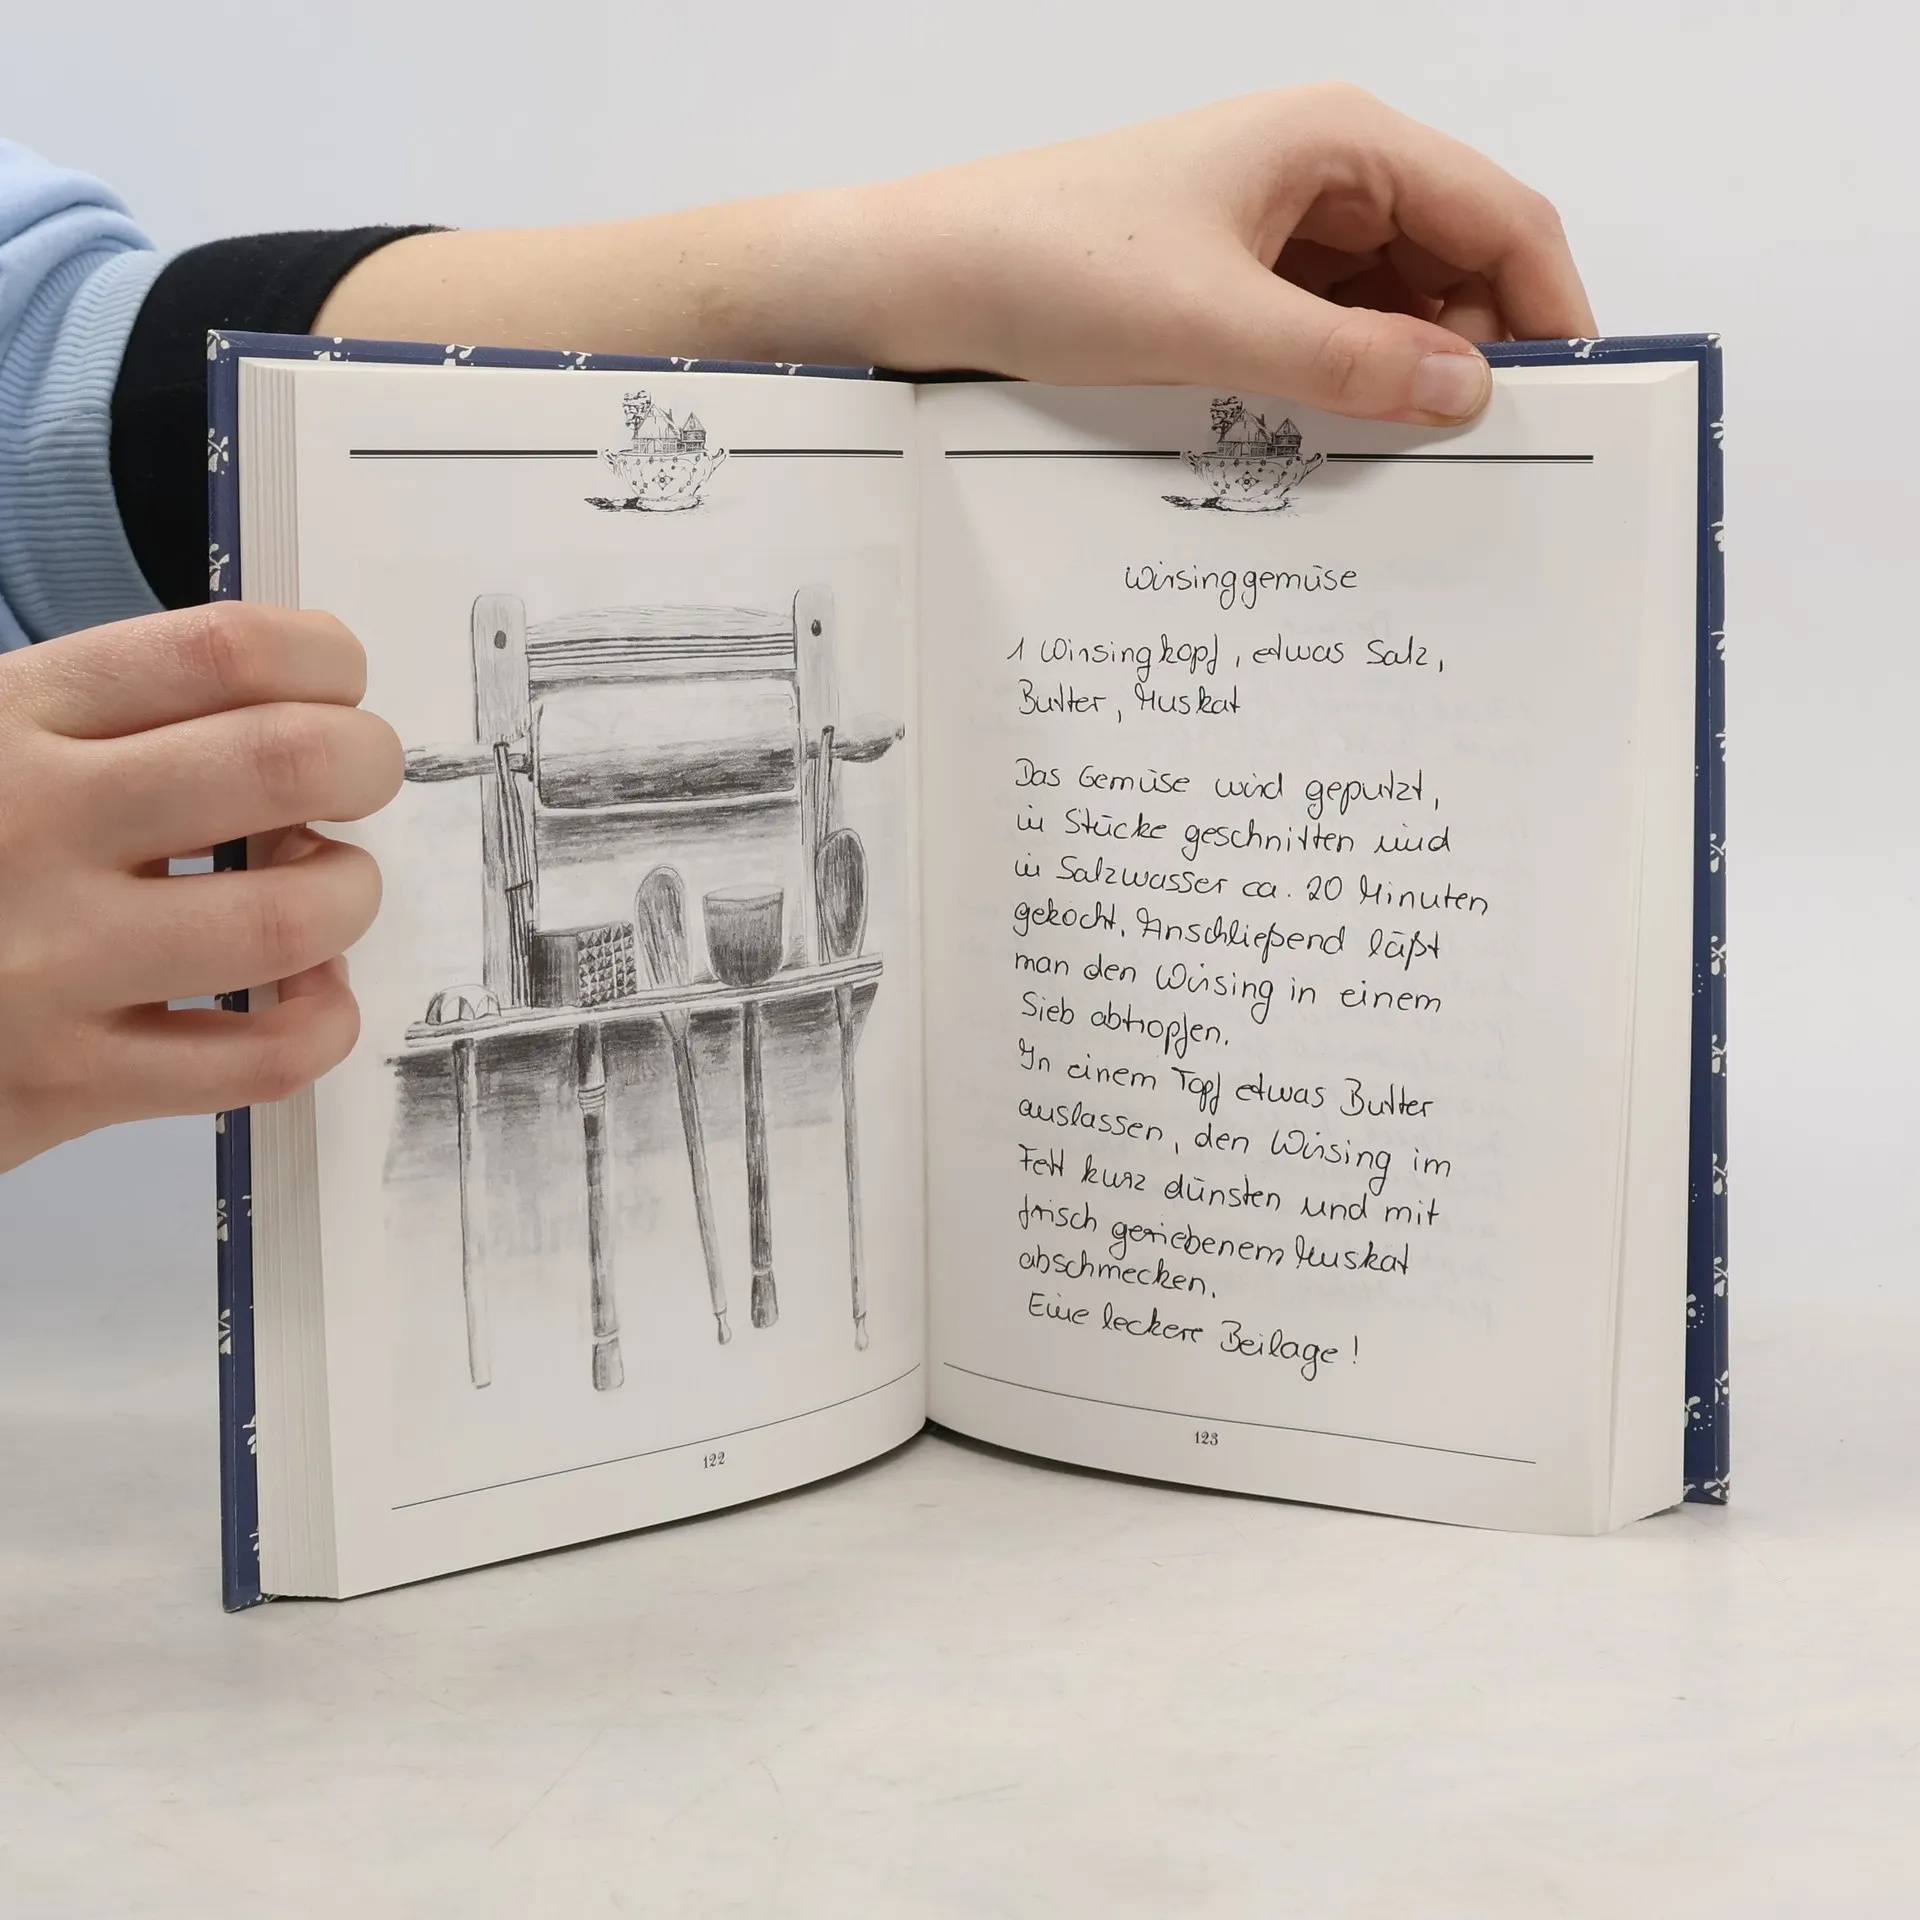 122
Wirsinggemüse
1 Wirsingkopf, etwas Salz,
Butter, Muskat
Das Gemüse wird geputzt,
in Stücke geschnitten und
in Salzwasser ca. 20 Minuten
gekocht. Anschließend läßt
man den Wirsing in einem
Sieb abtropfen.
In einem Topf etwas Butter
auslassen, den Wirsing im
Fett kurz dünsten und mit
frisch geriebenem Muskat
abschmecken.
Eine leckere Beilage!
123